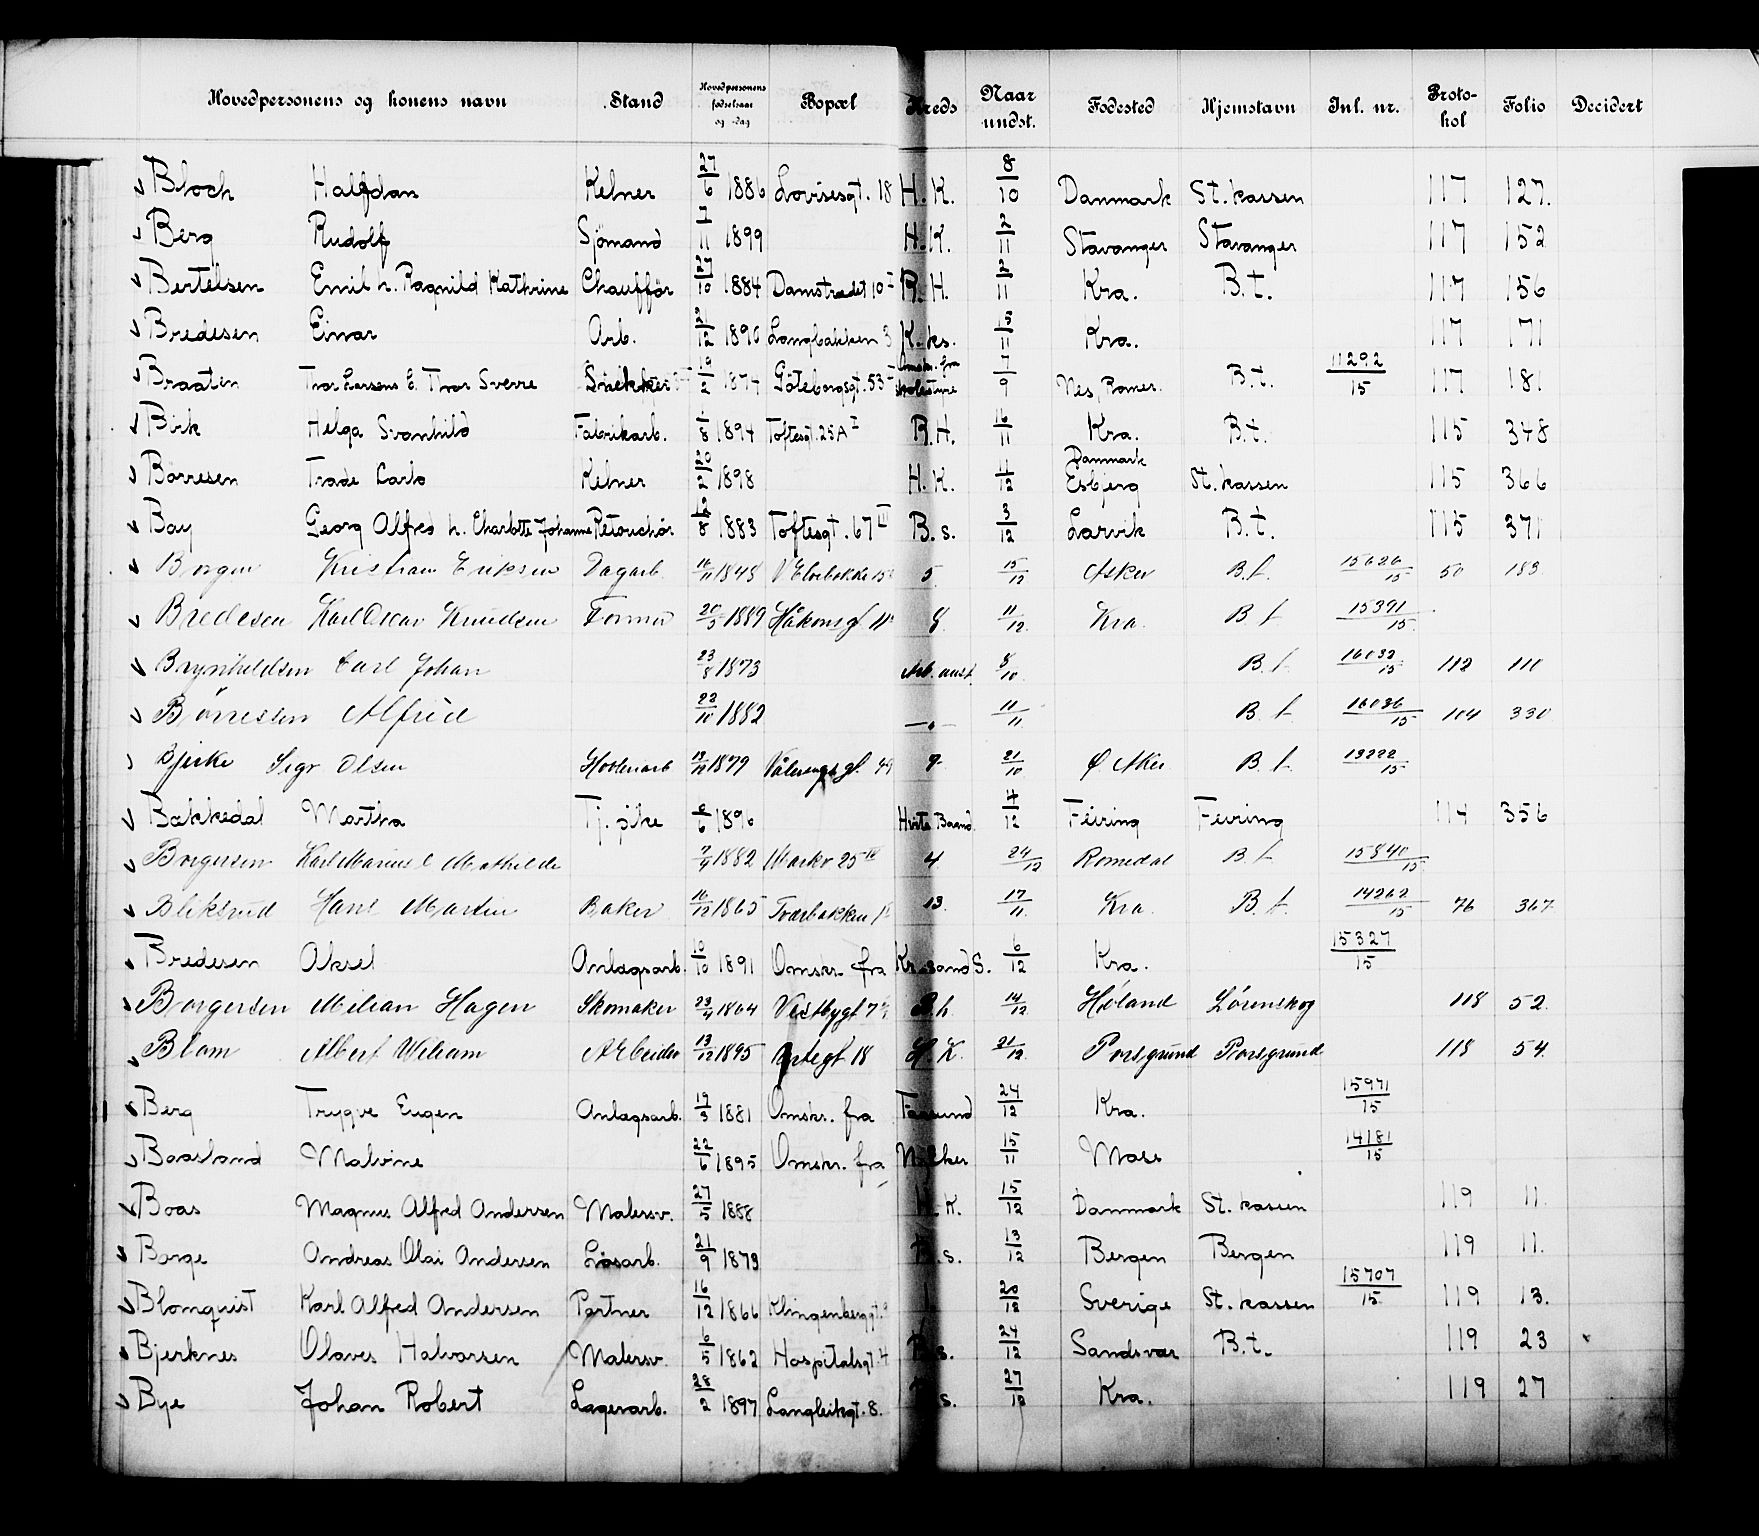 Hovedpersonens og konens navn Stand Hovedpersonens fødselsaar og -dag Bopæl Kreds Naar undst. Fødested Hjemstavn Inl. nr. Proto-kol Folio Decidert
Bloch Halfdan Kelner 27/6 1886 Lovisesgt. 18 H.K. 8/10 Danmark St. kassen 117 127.
Berg Rudolf Sjömand 7/11 1899 H.K. 2/11 Stavanger Stavanger 117 152
Bertelsen Emil h. Ragnild Kathrine Chaufför 27/10 1884 Damstrædet 10 R.H. 2/11 Kra. B.t. 117 156
Bredesen Einar Arb. 21/12 1890 Langbakken 3 K.ks. 15/11 Kra. 117 171
Braaten Thor Larsens E. Thor Sverre Snekker 19/2 1874 Göteborgsgt. 53 Omskr. fra 7/9 Nes, Romer. B.t. 11292/15 117 181
Birk Helga Svanhild Fabrikarb. 1/8 1894 Toftesgt. 25A I R.H. 16/11 Kra. B.t. 115 348
Börresen Trade Carlo Kelner 20/2 1898 H.K. 4/12 Danmark Esbjerg St. kassen 115 366
Bay Georg Alfred h. Charlotte Johanne Retouchör 12/8 1883 Toftesgt. 67 III B.s. 3/12 Larvik B.t. 115 371
Borgen Kristian Eriksen Dagarb. 16/11 1848 5 15/12 Asker B.t. 15626/15 50 183
Bredesen Karl Oscar Knudsen Former 20/5 1889 Håkonsgt 11 8 11/12 Kra B t 15391/15
Brynhildsen Carl Johan 23/8 1873 Arb. anst. 8/10 B. t. 16032/15 112 110
Börresen Alfred 22/10 1882 —„— 11/11 B. t. 16036/15 104 330
Bjerke Sigv Olsen 13/12 1879 Vålerengt gt. 49 9 21/10 Ø. Aker B. t. 13222/15
Bækkedal Martha Tj. pike 6/6 1896 Hvite Baand 4/12 Feiring Feiring 114 356
Borgersen Karl Marius E Mathilde 7/9 1882 Markv 25 IV 4 24/12 Romedal B. t. 15840/15
Bliksrud Hans Martin Baker 16/12 1865 Tværbakken 13. 17/11 Kra. B. t. 14262/15 76 367
Bredesen Aksel Anlægsarb. 10/10 1891 Omskr. fra Kr.sand S. 6/12 Kra. 15327/15
Borgersen Milian Hagen Skomaker 23/4 1864 Vestbygt 7 B.h. 14/12 Høland Lörenskog 118 52.
Blom Albert Wiliam Arbeider 13/12 1895 18 H. K. 21/12 Porsgrund Porsgrund 118 54.
Berg Trygve Eugen Anlægsarb. 19/3 1881 Omskr. fra Farsund 24/12 Kra. 15971/15
Baasland Malvine 22/6 1895 Omskr. fra 15/11 Moss 14181/15
Boas Magnus Alfred Andersen Malersv. 27/5 1888 H.K. 15/12 Danmark St. kassen 119 11.
Borge Andreas Olai Andersen Løsarb. 21/9 1873 B.s. 13/12 Bergen Bergen 119 11.
Blomquist Karl Alfred Andersen Portner 16/12 1866 Klingenberggt. 1 20/12 Sverige St. kassen 15707/15 119 13.
Bjerknes Olaves Halvorsen Malersv. 6/5 1862 Hospitalsgt. 4 B.s. 24/12 Sandsvær B.t. 119 23
Bye Johan Robert Lagerarb. 28/2 1897 Langleikgt. 8. s. 27/12 Kra. 119 27